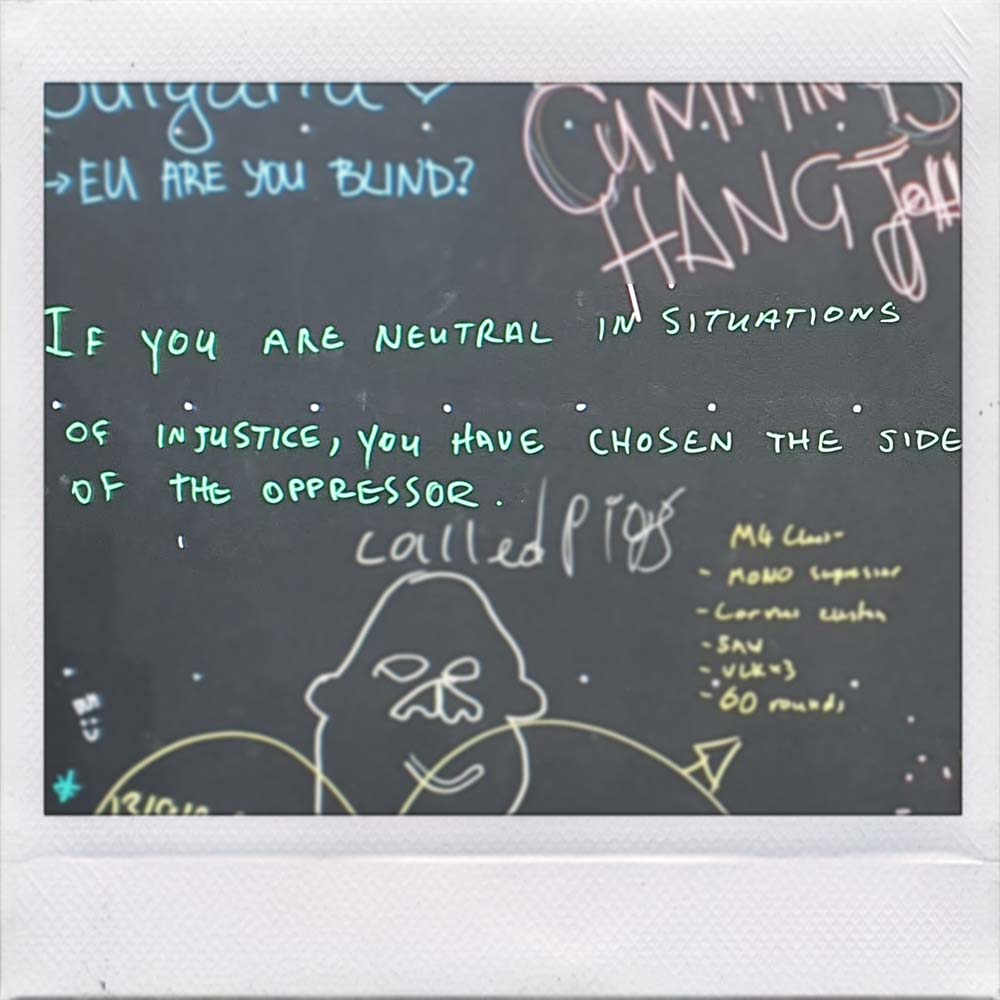 Bulgaria
CUMMINGS
→EU ARE YOU BLIND?
HANG JOH
IF YOU ARE NEUTRAL IN SITUATIONS
OF INJUSTICE, YOU HAVE CHOSEN THE SIDE
OF THE OPPRESSOR.
called Pigs
M4
- MONO
-
- SAW
- VLK x3
- 60 rounds